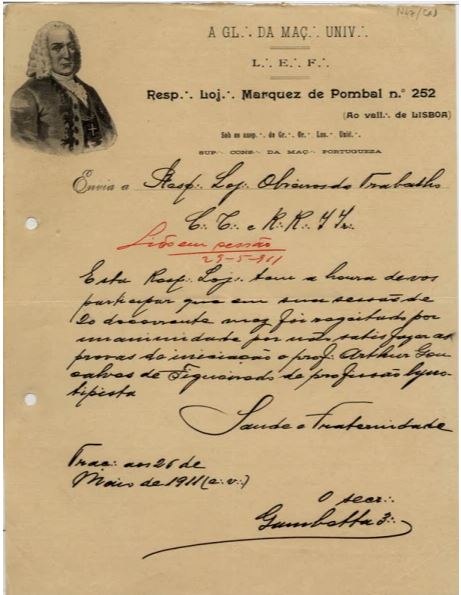 N47/CAD
A GL∴ DA MAÇ∴ UNIV∴
L∴ E∴ F∴
Resp∴ Loj∴ Marquez de Pombal n.º 252
(Ao vall∴ de LISBOA)
Sob os ausp∴ do Gr∴ Or∴ Lus∴ Unid∴
SUP∴ CONS∴ DA MAÇ∴ PORTUGUEZA
Envia a Resp∴ Loj∴ Obreiros do Trabalho
C∴ C∴ e R∴ R∴ I Ir∴
Lido em sessão
29-5-911
Esta Resp∴ Loj∴ tem a honra de vos
participar que em sua sessão de
20 do corrente mez foi regeitado por
unanimidade por não satisfazer as
provas da iniciação o prof∴ Arthur Gon
calves de Figueiredo de profissão lyno
tipista
Saude e Fraternidade
Traç∴ aos 26 de
Maio de 1911 (e∴ v∴)
O secr∴
Gambetta 3∴